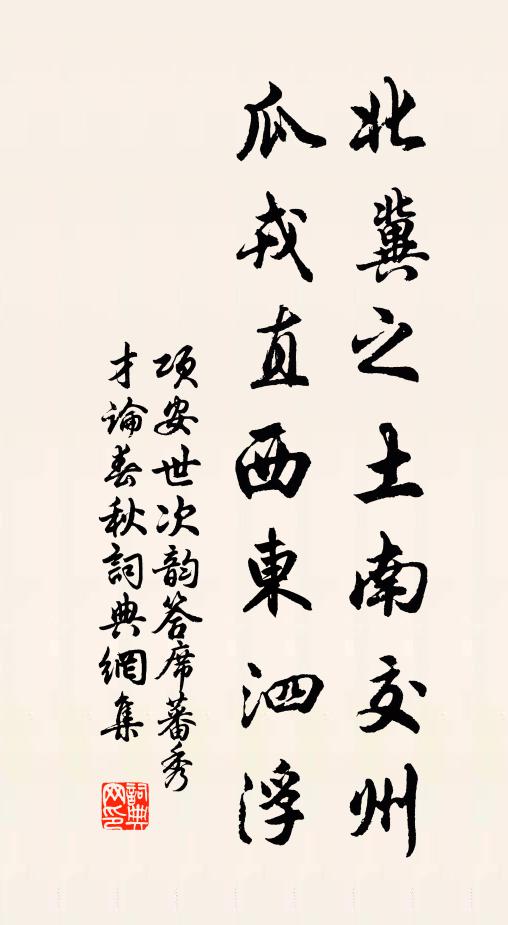 北冀之土南交州
瓜戎直西東泗浮
項安世次韵答席蕃秀
才論春秋詞典網集
詞典网印